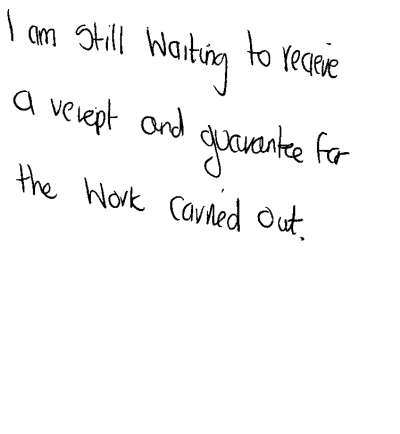 I am still waiting to recieve
a reciept and guarantee for
the work carried out.